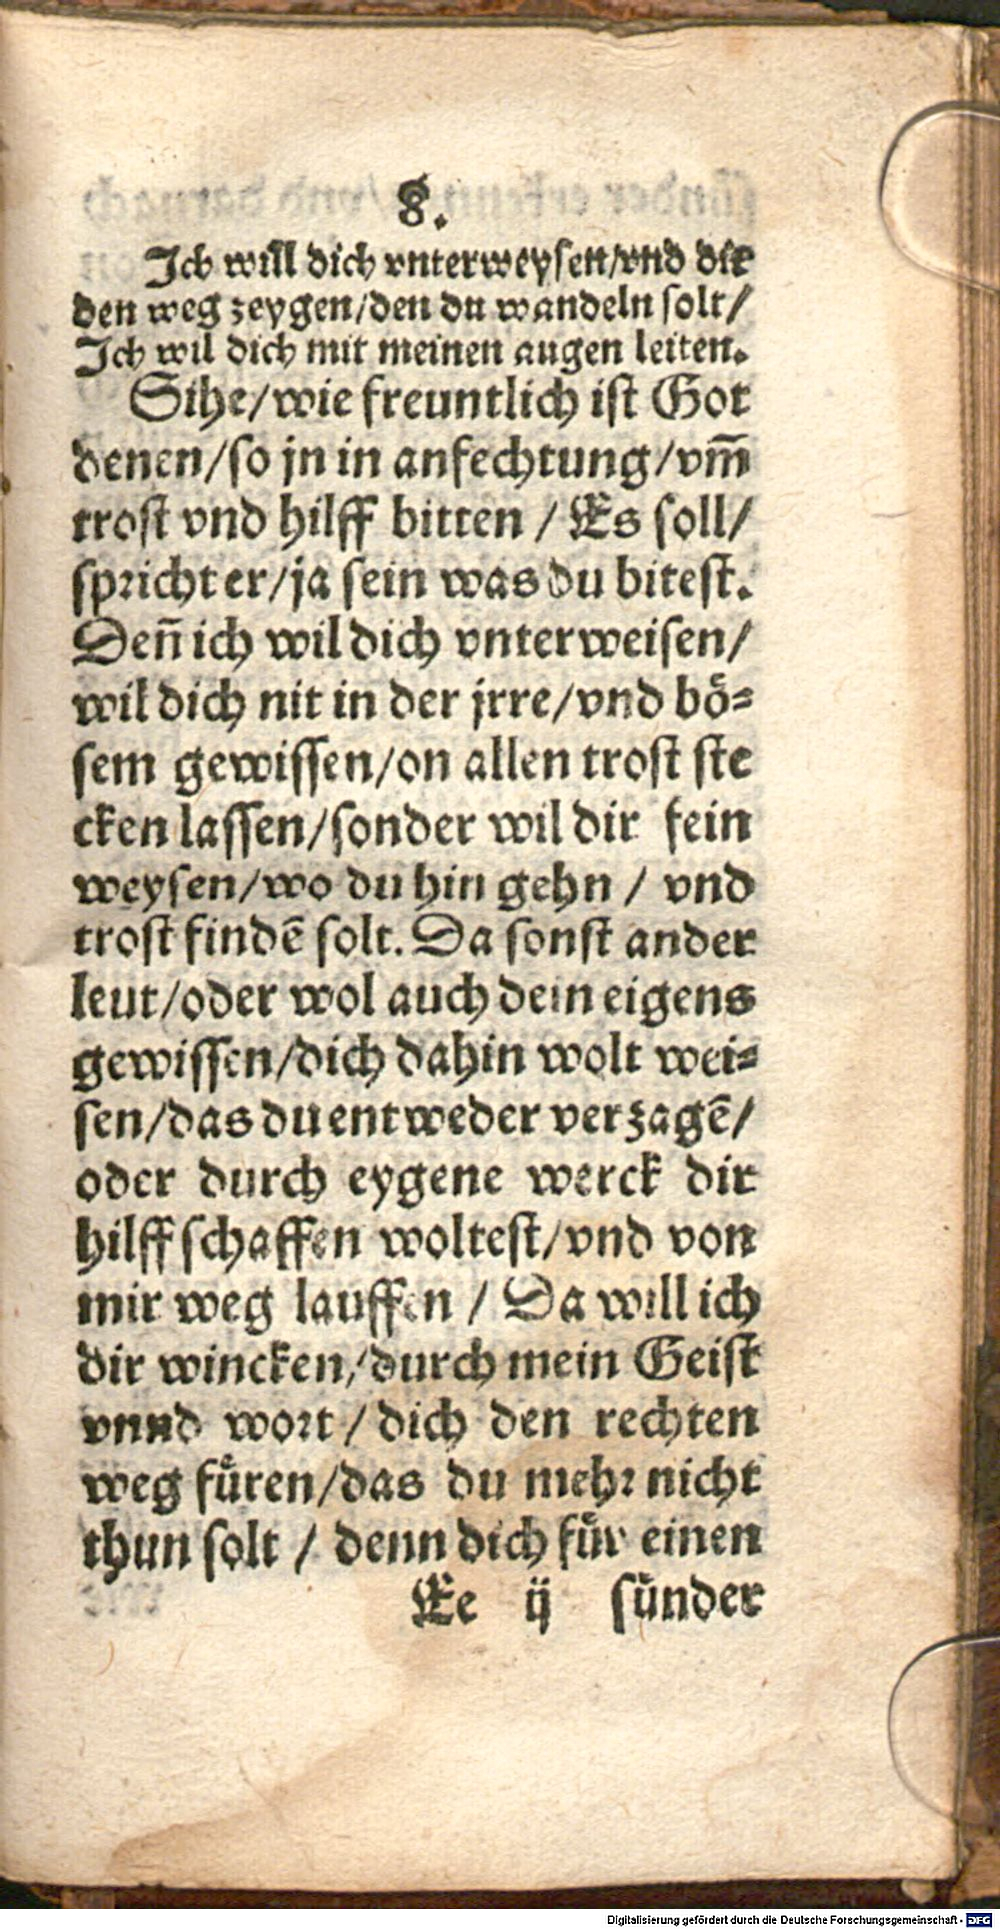 8.
Ich will dich vnterweysen/vnd dir
den weg zeygen/den du wandeln solt/
Ich wil dich mit meinen augen leiten.
Sihe/wie freuntlich ist Got
denen/so jn in anfechtung/vm̃
trost vnd hilff bitten / Es soll/
spricht er/ja sein was du bitest.
Deñ ich wil dich vnterweisen/
wil dich nit in der jrre/vnd bö⸗
sem gewissen/on allen trost ste
cken lassen/sonder wil dir fein
weysen/wo du hin gehn / vnd
trost findẽ solt. Da sonst ander
leut/oder wol auch dein eigens
gewissen/dich dahin wolt wei⸗
sen/das du entweder verzagẽ/
oder durch eygene werck dir
hilff schaffen woltest/vnd von
mir weg lauffen / Da will ich
dir wincken/durch mein Geist
vnnd wort / dich den rechten
weg füren/das du mehr nicht
thun solt / denn dich für einen
Ee ij sünder
Digitalisierung gefördert durch die Deutsche Forschungsgemeinschaft - DFG